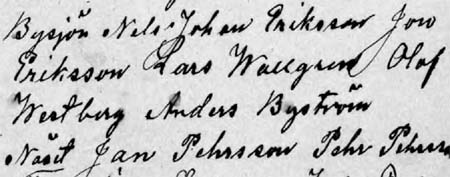 Bysjön Nels Johan Eriksson Jon
Eriksson Lars Wallgren Olof
Westberg Anders Byström
Näset Jan Pehrsson Pehr Pehrsso